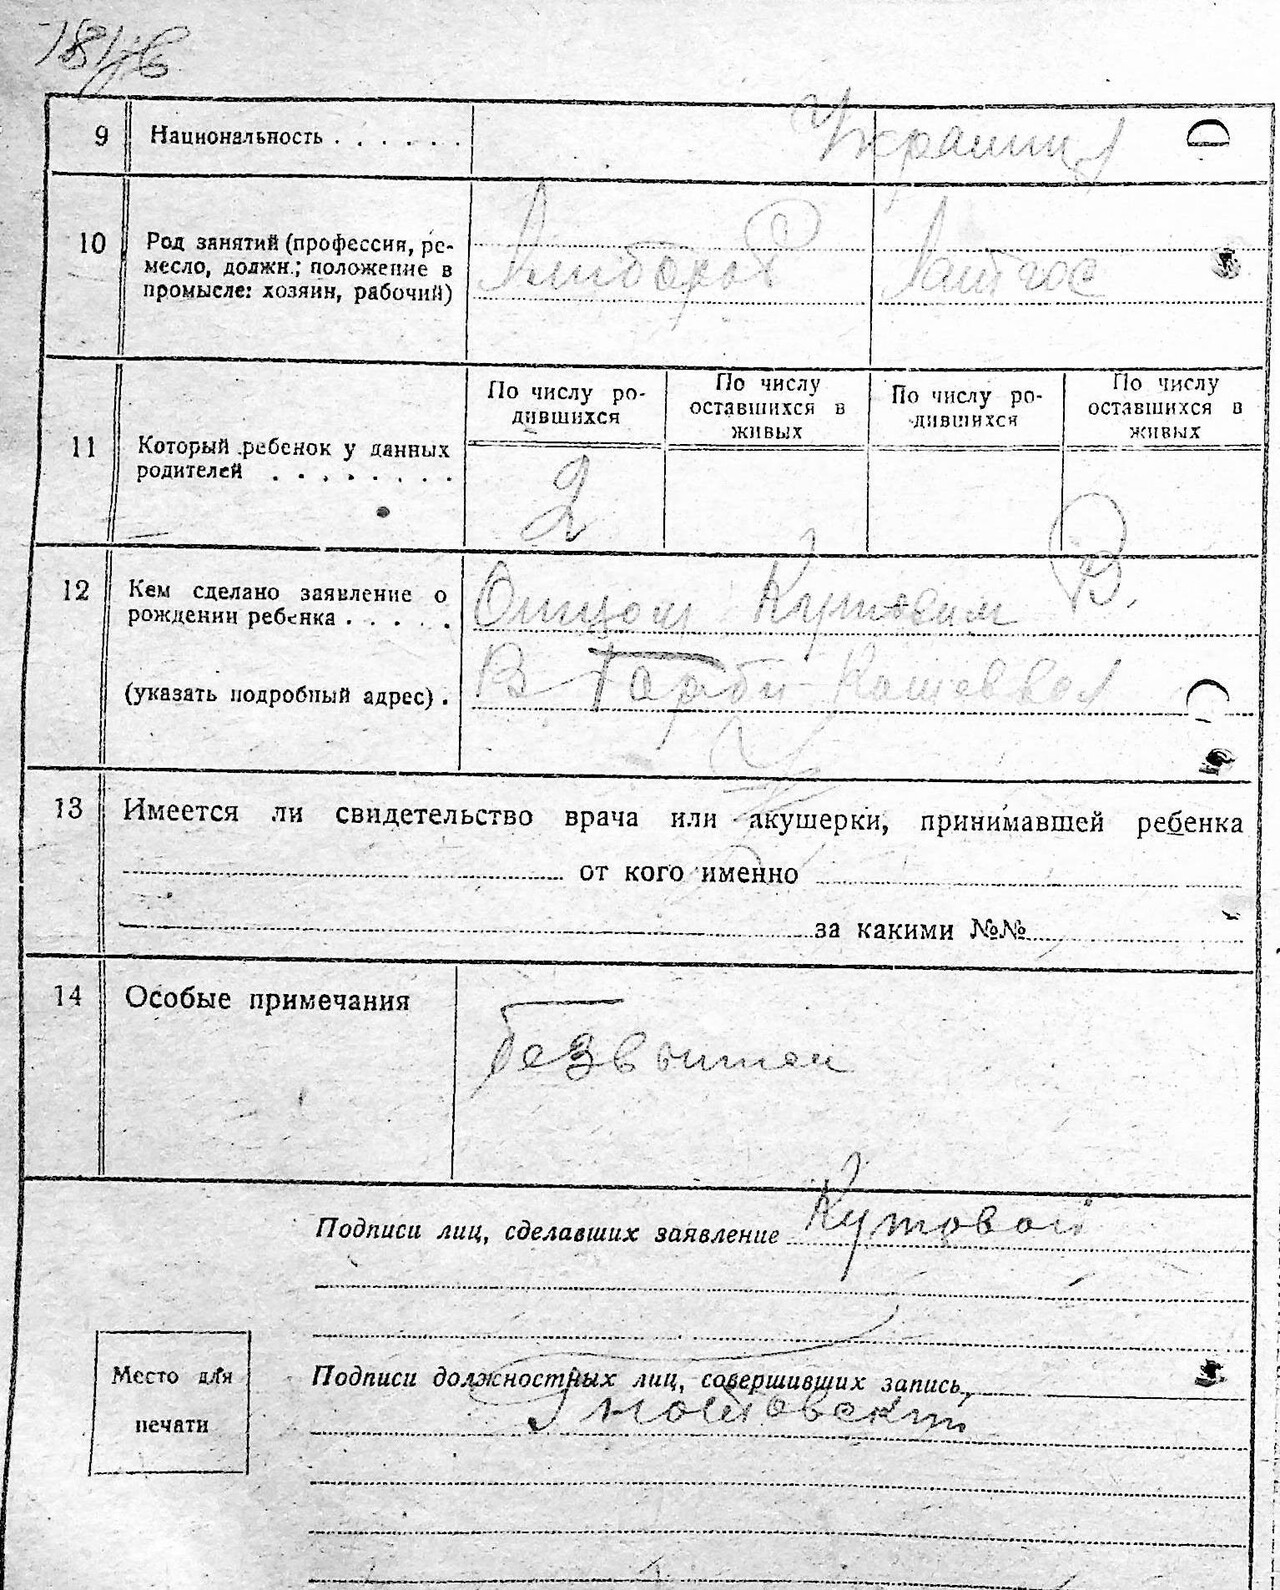 9 Национальность . . . . . . Украинц
10 Род занятий (профессия, ре-
месло, должн.; положение в
промысле: хозяин, рабочий)
По числу ро-
дившихся
По числу
оставшихся в
живых
По числу ро-
дившихся
По числу
оставшихся в
живых
11 Который ребенок у данных
родителей . . . . . . . .
2
12 Кем сделано заявление о
рождении ребенка . . . . .
Отцом Кутовим В.
(указать подробный адрес) .
В
13 Имеется ли свидетельство врача или акушерки, принимавшей ребенка
от кого именно
за какими №№
14 Особые примечания
Подписи лиц, сделавших заявление Кутовой
Место для
печати
Подписи должностных лиц, совершивших запись,